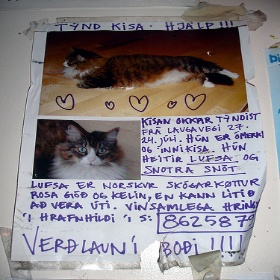 TÝND KISA. HJÁLP!!!
KISAN OKKAR TÝNDIST
FRÁ LAUGAVEGI 27.
24. JÚLÍ. HÚN ER ÓMERKT
OG INNIKISA. HÚN
HEITIR LUFSA. OG
SNOTRA SNÓT.
LUFSA ER NORSKUR SKÓGARKÖTTUR
ROSA GÓÐ OG KELIN, EN KANN LÍTIÐ
AÐ VERA ÚTI. VINSAMLEGA HRINGIÐ
Í HRAFNHILDI Í S: 8625879
VERÐLAUN Í BOÐI !!!!